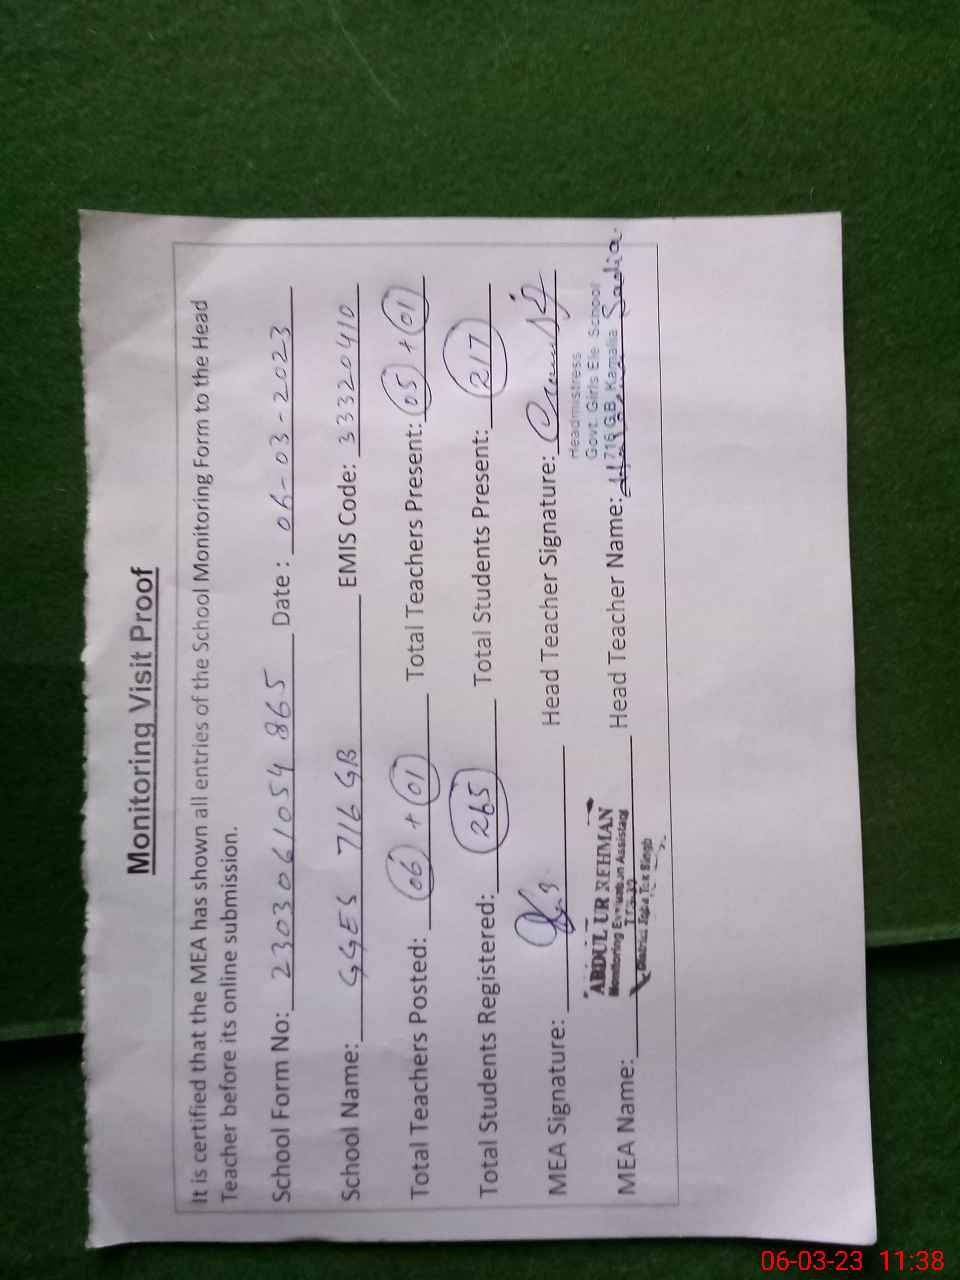 Monitoring Visit Proof
It is certified that the MEA has shown all entries of the School Monitoring Form to the Head
Teacher before its online submission.
School Form No: 2303061054865 Date: 06-03-2023
School Name: GGES 716 GB EMIS Code: 33320410
Total Teachers Posted: 06 + 01 Total Teachers Present: 05 + 01
Total Students Registered: 265 Total Students Present: 217
MEA Signature: Head Teacher Signature:
Headmistress
Govt. Girls Ele School
716 G.B. Kamalia
MEA Name: ABDUL UR REHMAN Head Teacher Name: Sadia
Monitoring Evaluation Assistant
District Toba Tek Singh
06-03-23 11:38